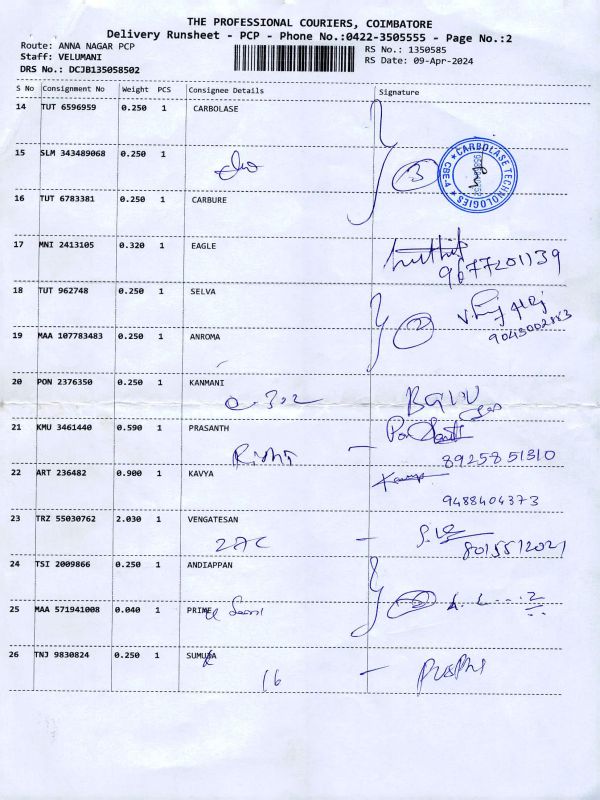 THE PROFESSIONAL COURIERS, COIMBATORE
Delivery Runsheet - PCP - Phone No.:0422-3505555 - Page No.:2
Route: ANNA NAGAR PCP RS No.: 1350585
Staff: VELUMANI RS Date: 09-Apr-2024
DRS No.: DCJB135058502
S No Consignment No Weight PCS Consignee Details Signature
14 TUT 6596959 0.250 1 CARBOLASE
15 SLM 343489068 0.250 1
3 CARBOLASE TECHNOLOGIES CBE-4
16 TUT 6783381 0.250 1 CARBURE
17 MNI 2413105 0.320 1 EAGLE
9677201139
18 TUT 962748 0.250 1 SELVA
2
19 MAA 107783483 0.250 1 ANROMA
20 PON 2376350 0.250 1 KANMANI
21 KMU 3461440 0.590 1 PRASANTH
8925851310
22 ART 236482 0.900 1 KAVYA
9488404373
23 TRZ 55030762 2.030 1 VENGATESAN
8015512021
24 TSI 2009866 0.250 1 ANDIAPPAN
2
25 MAA 571941008 0.040 1 PRIME
26 TNJ 9830824 0.250 1 SUMUDA
16 -